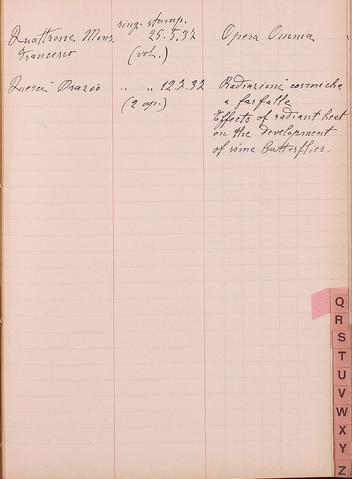 Quattrone Mons. ring. stamp. 25.5.32 Opera Omnia
Francesco (vol.)
Querci Orazio " " 12.2.32 Radiazioni cosmiche
(2 op.) a farfalle
Effects of radiant heat
on the development
of some butterflies.
Q
R
S
T
U
V
W
X
Y
Z